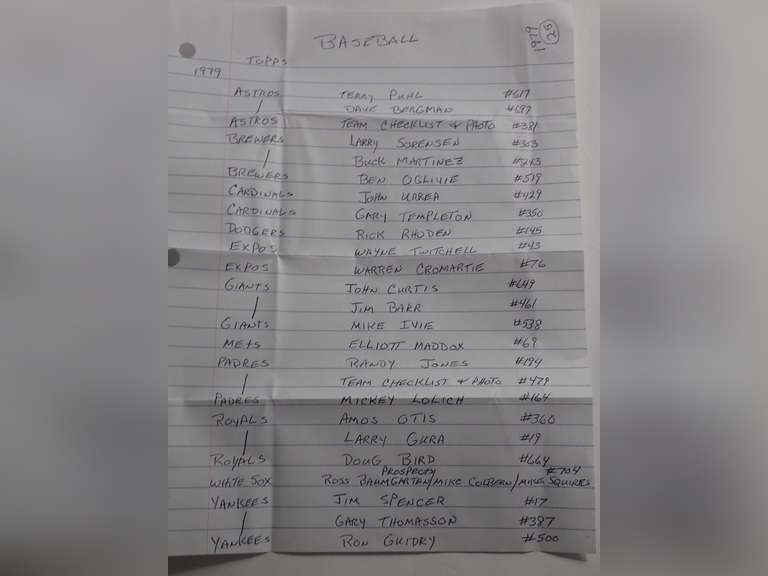 25
1979
BASEBALL
TOPPS
1979
ASTROS TERRY PUHL #617
/ DAVE BERGMAN #697
ASTROS TEAM CHECKLIST & PHOTO #381
BREWERS LARRY SORENSEN #303
/ BUCK MARTINEZ #243
BREWERS BEN OGLIVIE #519
CARDINALS JOHN URREA #429
CARDINALS GARY TEMPLETON #350
DODGERS RICK RHODEN #145
EXPOS WAYNE TWITCHELL #43
EXPOS WARREN CROMARTIE #76
GIANTS JOHN CURTIS #649
| JIM BARR #461
GIANTS MIKE IVIE #538
METS ELLIOTT MADDOX #69
PADRES RANDY JONES #194
/ TEAM CHECKLIST & PHOTO #479
PADRES MICKEY LOLICH #164
ROYALS AMOS OTIS #360
| LARRY GURA #19
ROYALS DOUG BIRD #664
PROSPECTS #704
WHITE SOX ROSS BAUMGARTEN/MIKE COLBERN/MIKE SQUIRES
YANKEES JIM SPENCER #17
/ GARY THOMASSON #387
YANKEES RON GUIDRY #500